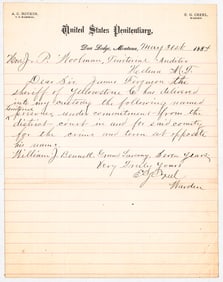 A. C. BOTKIN,
U. S. MARSHAL.
E. G. CREEL,
WARDEN.
United States Penitentiary,
Deer Lodge, Montana, May 21st 1884
Hon J. P. Woolman Territorial Auditor
Helena M.T.
Dear Sir, James Ferguson the
sheriff of Yellowstone Co has delivered
into my custody the following named
prisoner under commitment from the
district court in and for said county
for the crime and term set opposite
his name
William J. Bennett Grand Larceny Seven Years
Very Truly Yours
Warden